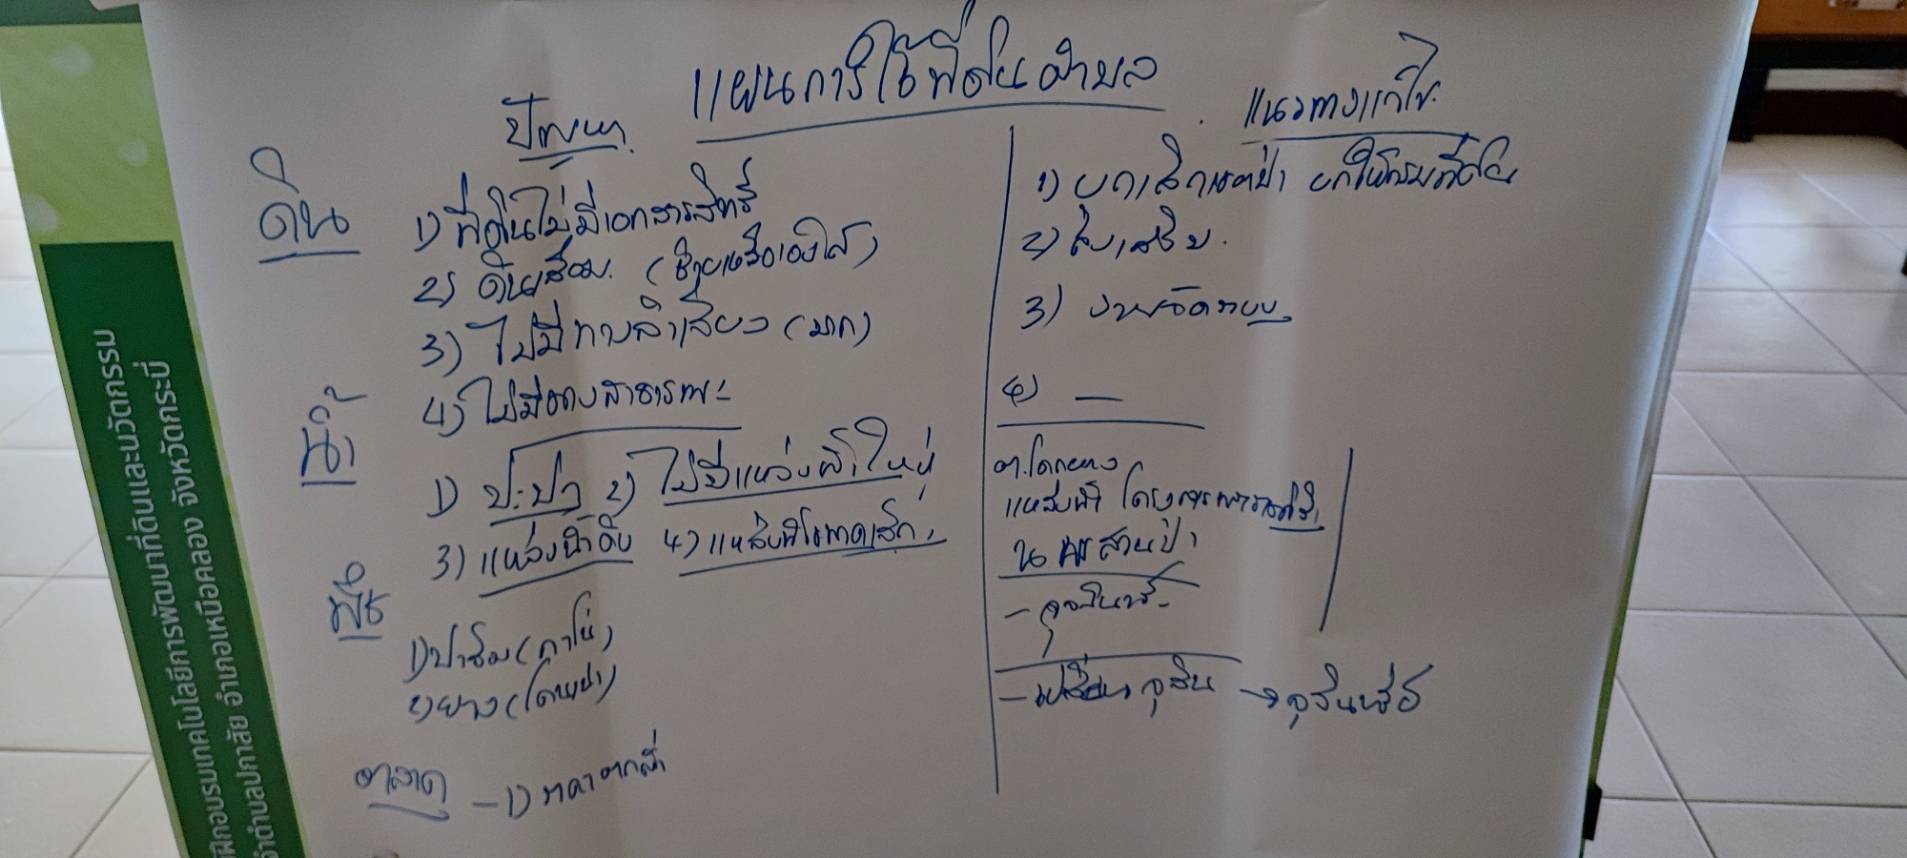 แผนการใช้ที่ดินตำบล
ปัญหา
แนวทางแก้ไข
ดิน
1) ที่ดินไม่มีเอกสารสิทธิ์
2) ดินเสื่อม (
3) ไม่มีทางลำเลียง (มาก)
4) ไม่มีทางสาธารณะ
น้ำ
1) ป.ปา 2) ไม่มีแหล่งน้ำใหญ่
3) แหล่งน้ำดิบ 4) แหล่งน้ำขนาดเล็ก
พืช
1) ปาล์ม (
2) ยาง (โค่นป่า)
ตลาด – 1) ราคาตกต่ำ
1) ยกเลิกเขตป่า ยกให้กรมที่ดิน
2) ส่งเสริม
3) งานจัดระบบ
4) —
ต.โคกยาง
แหล่งน้ำ โครงการพระราชดำริ
- จุลินทรีย์
- เปลี่ยน → จุลินทรีย์
ฝึกอบรมเทคโนโลยีการพัฒนาที่ดินและนวัตกรรม
จำตำบลปกาสัย อำเภอเหนือคลอง จังหวัดกระบี่